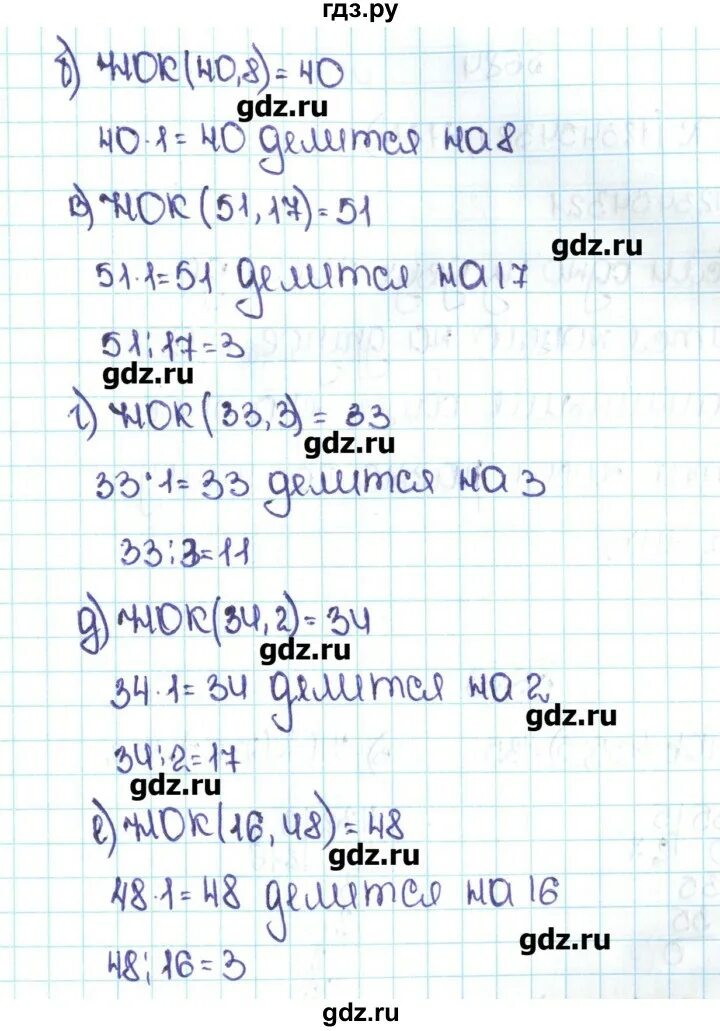 гдз.ру
б) НОК(40,8)=40
gdz.ru
40·1=40 делится на 8
в) НОК(51,17)=51
gdz.ru
51·1=51 делится на 17
51:17=3
gdz.ru
г) НОК(33,3)=33
gdz.ru
33·1=33 делится на 3
33:3=11
д) НОК(34,2)=34
gdz.ru
34·1=34 делится на 2
gdz.ru
34:2=17
gdz.ru
е) НОК(16,48)=48
gdz.ru
48·1=48 делится на 16
gdz.ru
48:16=3
gdz.ru